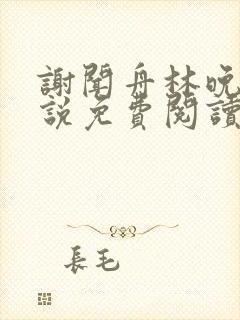 謝聞舟林晚
說免費閱讀
長毛